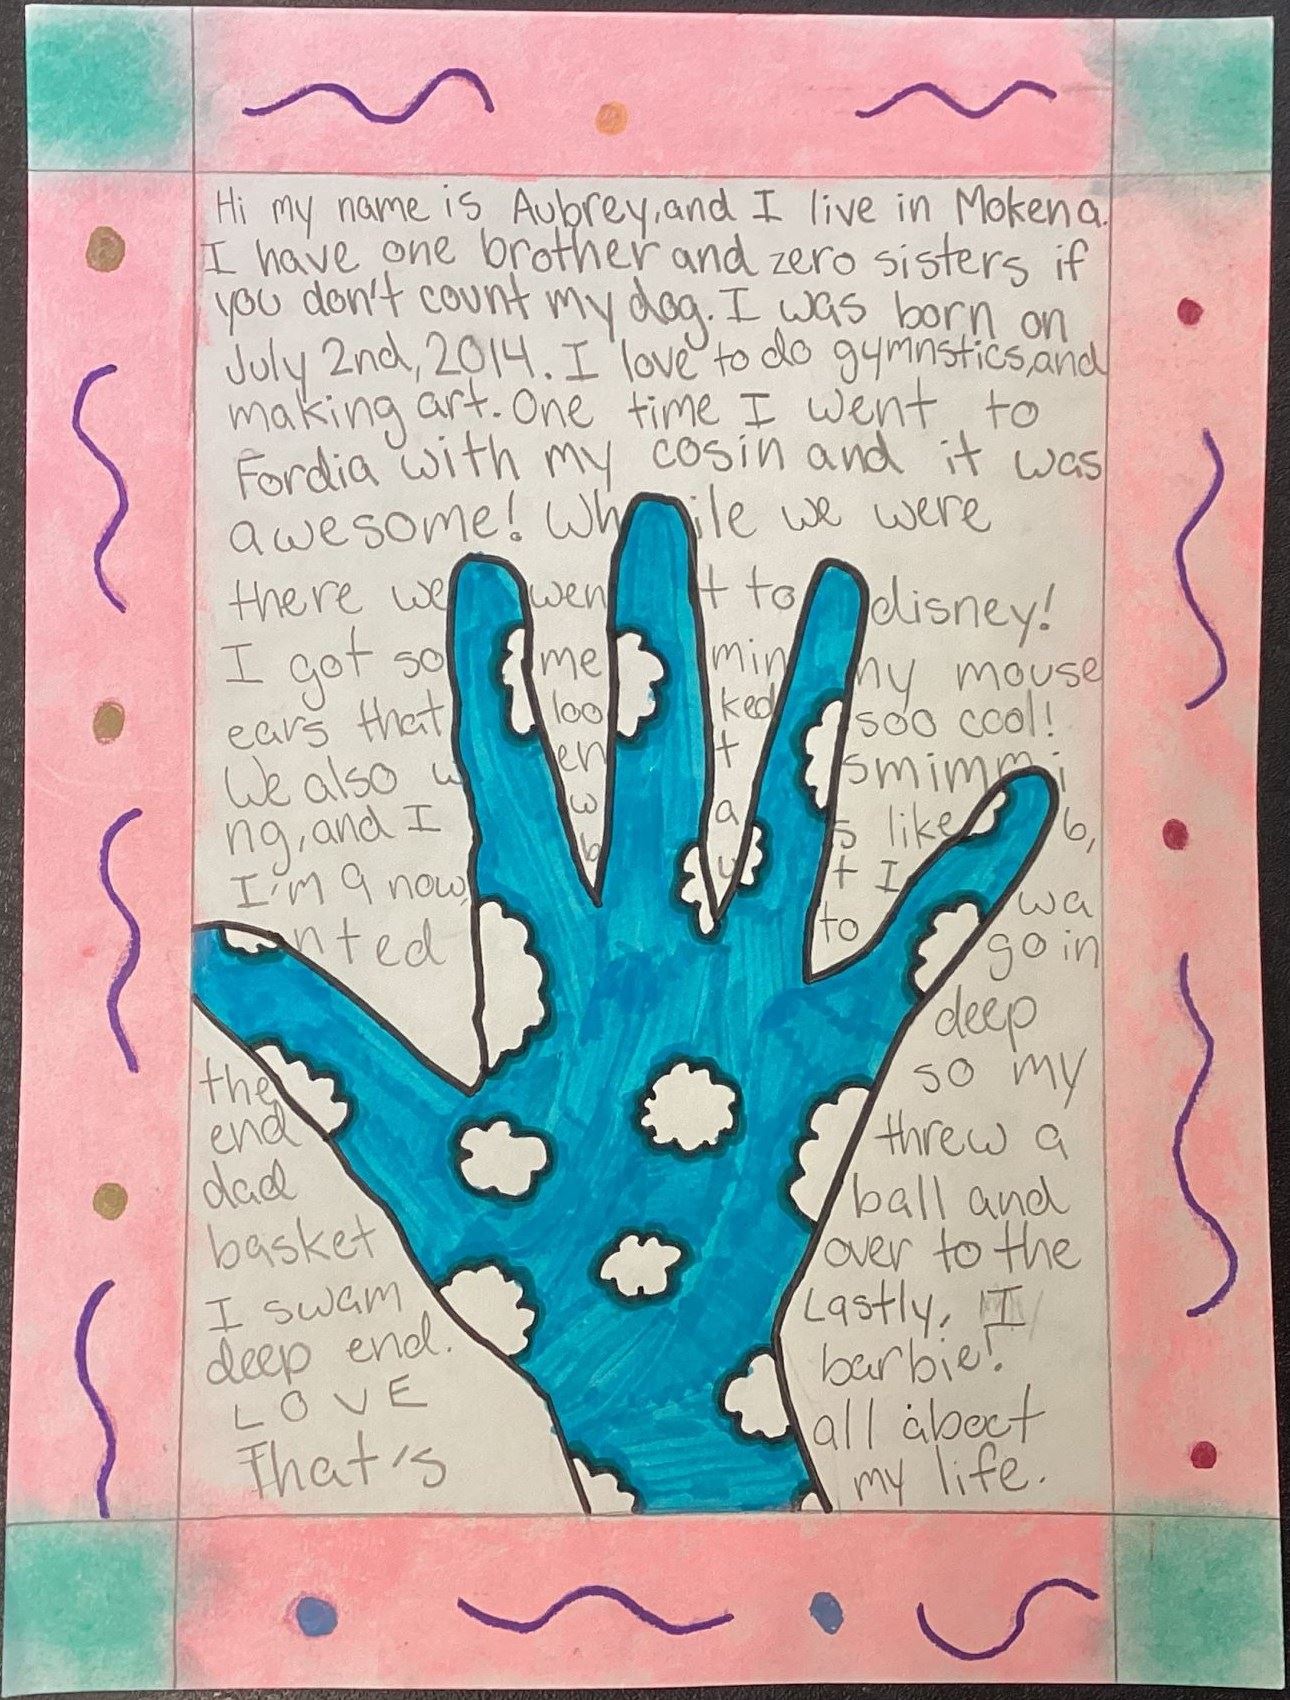 Hi my name is Aubrey, and I live in Mokena.
I have one brother and zero sisters if
you don't count my dog. I was born on
July 2nd, 2014. I love to do gymnstics, and
making art. One time I went to
Fordia with my cosin and it was
awesome! Wh ile we were
there we wen t to disney!
I got so me min ny mouse
ears that loo ked soo cool!
We also w en t smimmi
ng, and I w a s like 6,
I'm 9 now, b u t I wa
nted to go in
the deep
end so my
dad threw a
basket ball and
I swam over to the
deep end. Lastly, I
LOVE barbie!
That's all aboct
my life.